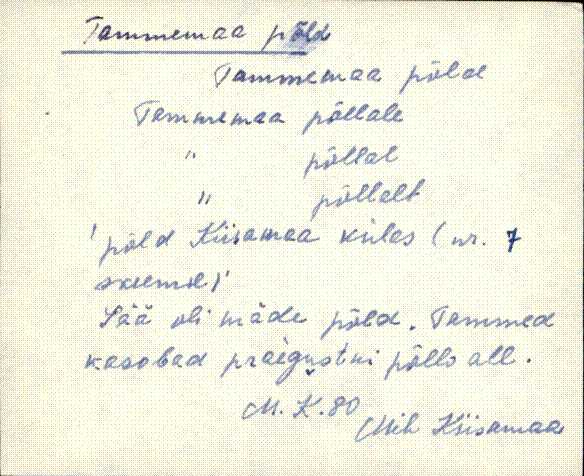 Tammemaa põld
Tammemaa põld
Tammemaa põllale
" põllal
" põllalt
'põld Kiisamaa külas (nr. 7
skeemil)'
Sää oli mäde põld. Tammed
kasobad praigustki põllo all.
M. K. 80
Mih Kiisamaa